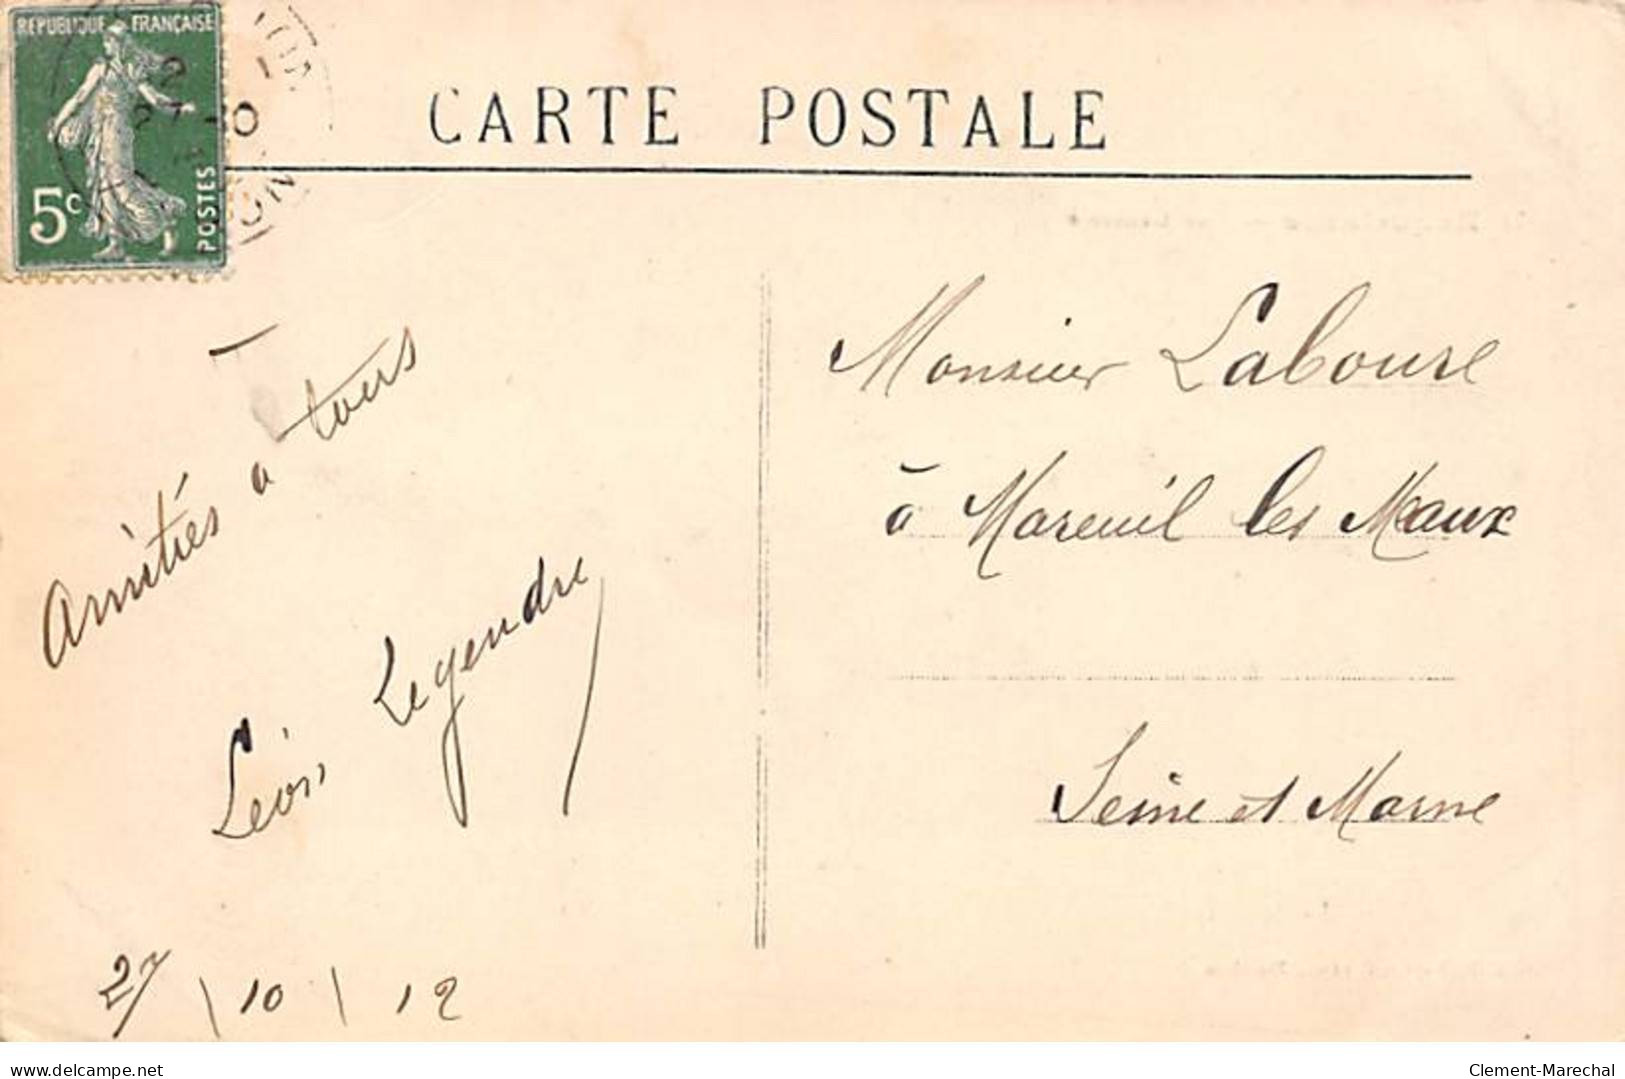 REPUBLIQUE FRANÇAISE
5c
POSTES
CARTE POSTALE
Amitiés a tous
Léon Legendre
27 \ 10 \ 12
Monsieur Laboure
à Mareuil les Meaux
Seine et Marne
delcampe.net
Clement-Marechal